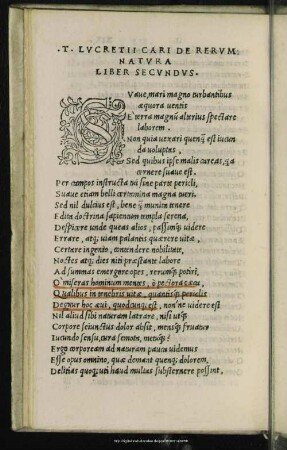 .T. LVCRETII CARI DE RERVM
NATVRA
LIBER SECVNDVS.
SVaue, mari magno turbantibus
æquora uentis
E terra magnũ alterius spectare
laborem.
Non quia uexari quenq̃ est iucun
da uoluptas,
Sed quibus ipse malis careas, q̃a
cernere suaue est.
Per campos instructa tui sine parte pericli,
Suaue etiam belli certamina magna tueri.
Sed nil dulcius est, bene q̃ munita tenere
Edita doctrina sapientum templa serena,
Despicere unde queas alios, passimq; uidere
Errare, atq; uiam palanteis quærere uitæ.
Certare ingenio, contendere nobilitate,
Noctes atq; dies niti præstante labore
Ad summas emergere opes, rerumq; potiri.
O miseras hominum menteis, ò pectora cæca,
Qualibus in tenebris uitæ, quantisq; periclis
Degitur hoc æui, quodcunq; est, nonne uidere est
Nil aliud sibi naturam latrare, nisi utq;
Corpore seiunctus dolor absit, mensq; fruatur
Iucundo sensu, cura semota, metuq;?
Ergo corpoream ad naturam pauca uidemus
Esse opus omnino, quæ demant quenq; dolorem,
Delitias quoq; uti haud multas substernere possint.